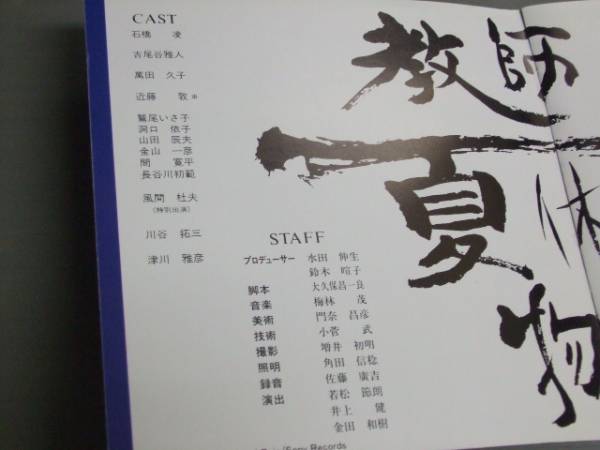 CAST
石橋 凌
吉尾谷雅人
萬田 久子
近藤 敦
鷲尾いさ子
洞口 依子
山田 辰夫
金山 一彦
間 寛平
長谷川初範
風間 杜夫
(特別出演)
川谷 拓三
津川 雅彦
教師
夏休
物
STAFF
プロデューサー 水田 伸生
鈴木 喧子
脚本 大久保昌一良
音楽 梅林 茂
美術 門奈 昌彦
技術 小菅 武
撮影 増井 初明
照明 角田 信稔
録音 佐藤 廣吉
演出 若松 節朗
井上 健
金田 和樹
Sony Records